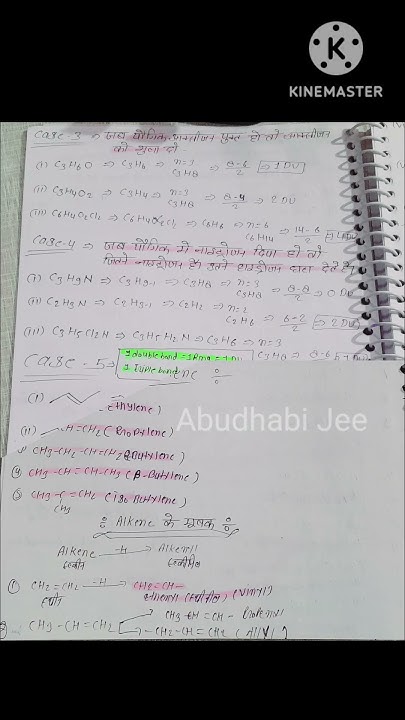 KINEMASTER
Case-3 → जब यौगिक में ऑक्सीजन युक्त हो तो ऑक्सीजन
को भुला दो
(i) C3H6O ⇒ C3H6 ⇒ n=3 C3H8 ⇒ 8-6/2 ⇒ 1DU
(ii) C3H4O2 ⇒ C3H4 ⇒ n=3 C3H8 ⇒ 8-4/2 ⇒ 2DU
(iii) C6H4OCl2 ⇒ C6H6 ⇒ n=6 C6H14 ⇒ 14-6/2
Case-4 → जब यौगिक में नाइट्रोजन दिया हो तो
जितने नाइट्रोजन हैं उतने हाइड्रोजन घटा देते हैं
(i) C3H9N ⇒ C3H9-1 ⇒ C3H8 ⇒ n=3 C3H8 ⇒ 8-8/2 ⇒ 0DU
(ii) C2H3N ⇒ C2H3-1 ⇒ C2H2 ⇒ n=2 C2H6 ⇒ 6-2/2 ⇒ 2DU
(iii) C3H5Cl2N ⇒ C3H5H2N ⇒ C3H6 ⇒ n=3 C3H8
Case-5 ⇒
1 double band = 1 Ring =
1 Triple band
(i) Ethylene)
Abudhabi Jee
(ii) H=CH2 (Propylene)
CH3-CH2-CH=CH2 Butylene)
④ CH3-CH=CH-CH3 (β-Butylene)
⑤ CH3-C=CH2 (iso Butylene)
CH3
Alkene के मूलक
Alkene -H → Alkenyl
① CH2=CH2 -H → CH2=CH-
(vinyl)
CH3-CH=CH- Propenyl
CH3-CH=CH2
-CH2-CH=CH2 (Allyl)